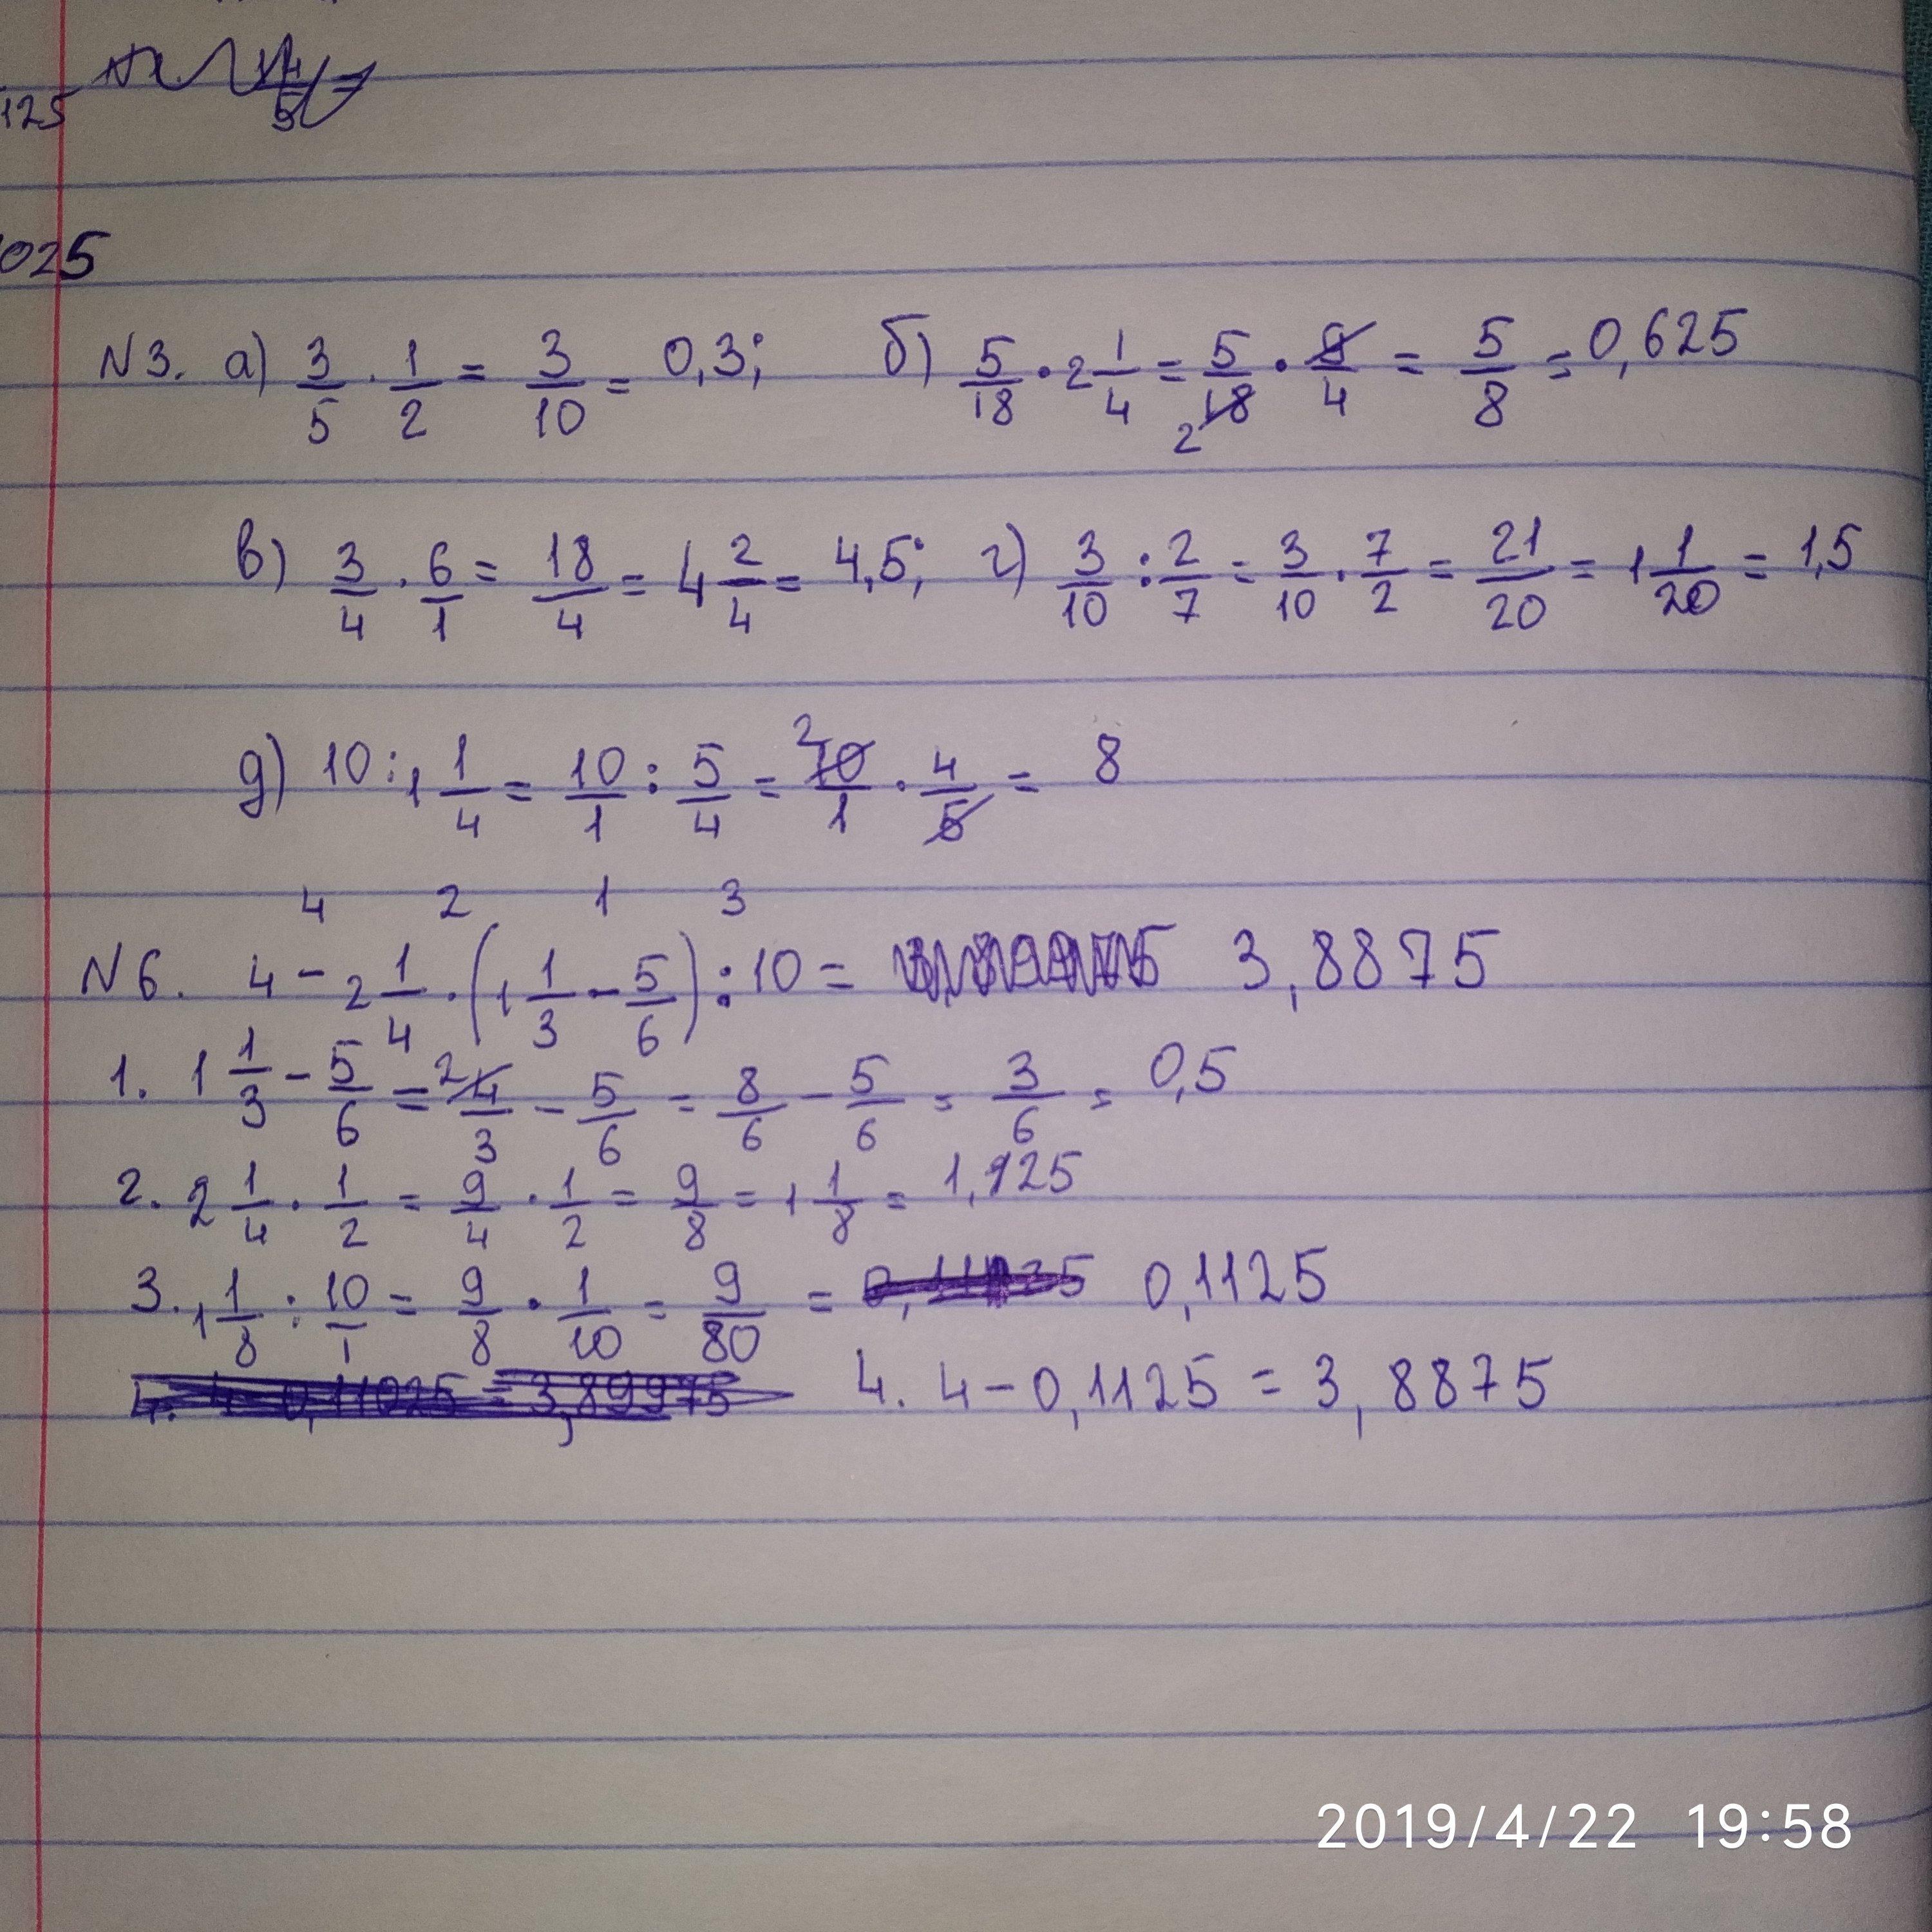 125
025
N3. а) 3/5 · 1/2 = 3/10 = 0,3; б) 5/18 · 2 1/4 = 5/18 · 9/4 = 5/8 = 0,625
2
в) 3/4 · 6/1 = 18/4 = 4 2/4 = 4,5; г) 3/10 : 2/7 = 3/10 · 7/2 = 21/20 = 1 1/20 = 1,5
д) 10 : 1 1/4 = 10/1 : 5/4 = 2 10/1 · 4/5 = 8
4 2 1 3
N6. 4 - 2 1/4 · (1 1/3 - 5/6) : 10 = 3,8875
1. 1 1/3 - 5/6 = 2 4/3 - 5/6 = 8/6 - 5/6 = 3/6 = 0,5
2. 2 1/4 · 1/2 = 9/4 · 1/2 = 9/8 = 1 1/8 = 1,125
3. 1 1/8 : 10/1 = 9/8 · 1/10 = 9/80 = 0,1125
4. 4 - 0,11025 = 3,89975 4. 4 - 0,1125 = 3,8875
2019/4/22 19:58